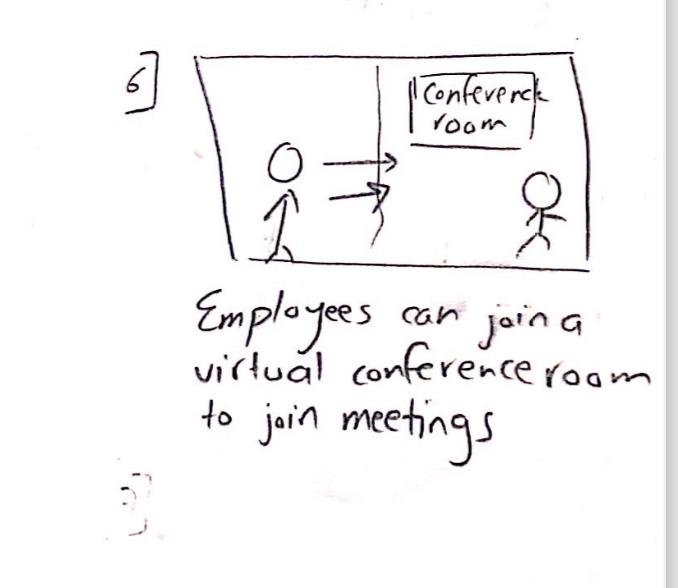 6]
Conference
room
Employees can join a
virtual conference room
to join meetings